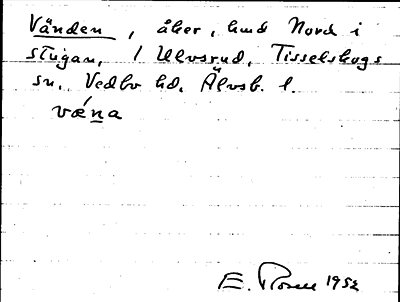 Vänden, åker, hmd Nord i
stugan, / Ulvsrud, Tisselskogs
sn. Vedbo hd. Älvsb. l.
vǽna
E. Rosell 1952